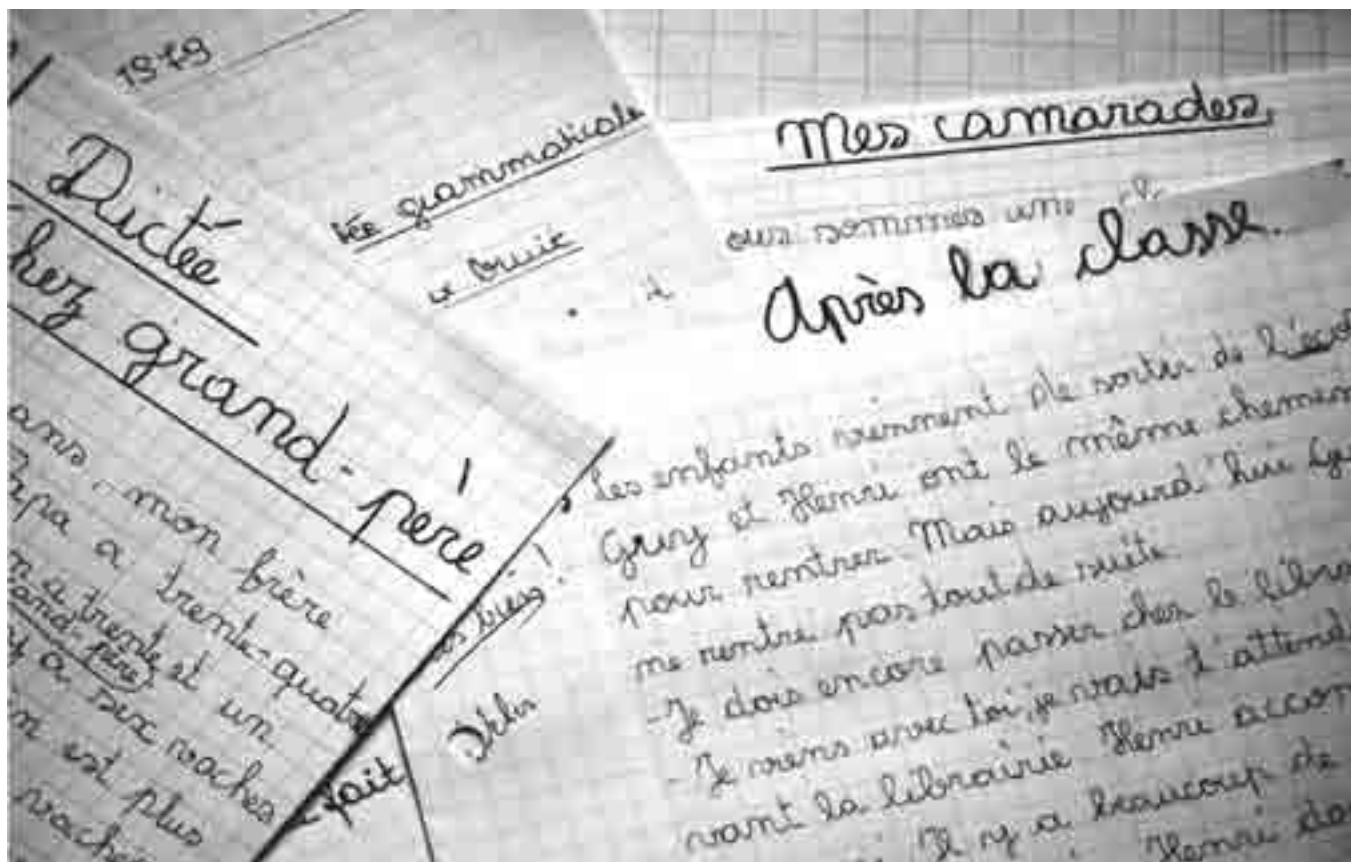 1979
Dictée
hez grand-père
ans, mon frère
apa a trente-quatre
n a trente et un
and-père
y a six vaches
n est plus
vaches
ée grammaticale
Mes camarades
ous sommes une
Après la classe.
Les enfants viennent de sortir de l'éco
Guy et Henri ont le même chemin
pour rentrer. Mais aujourd'hui Guy
ne rentre pas tout de suite.
- Je dois encore passer chez le libra
- Je viens avec toi, je vais t'attend
vant la librairie Henri accom
Il y a beaucoup de
Henri da
très bien!
fait